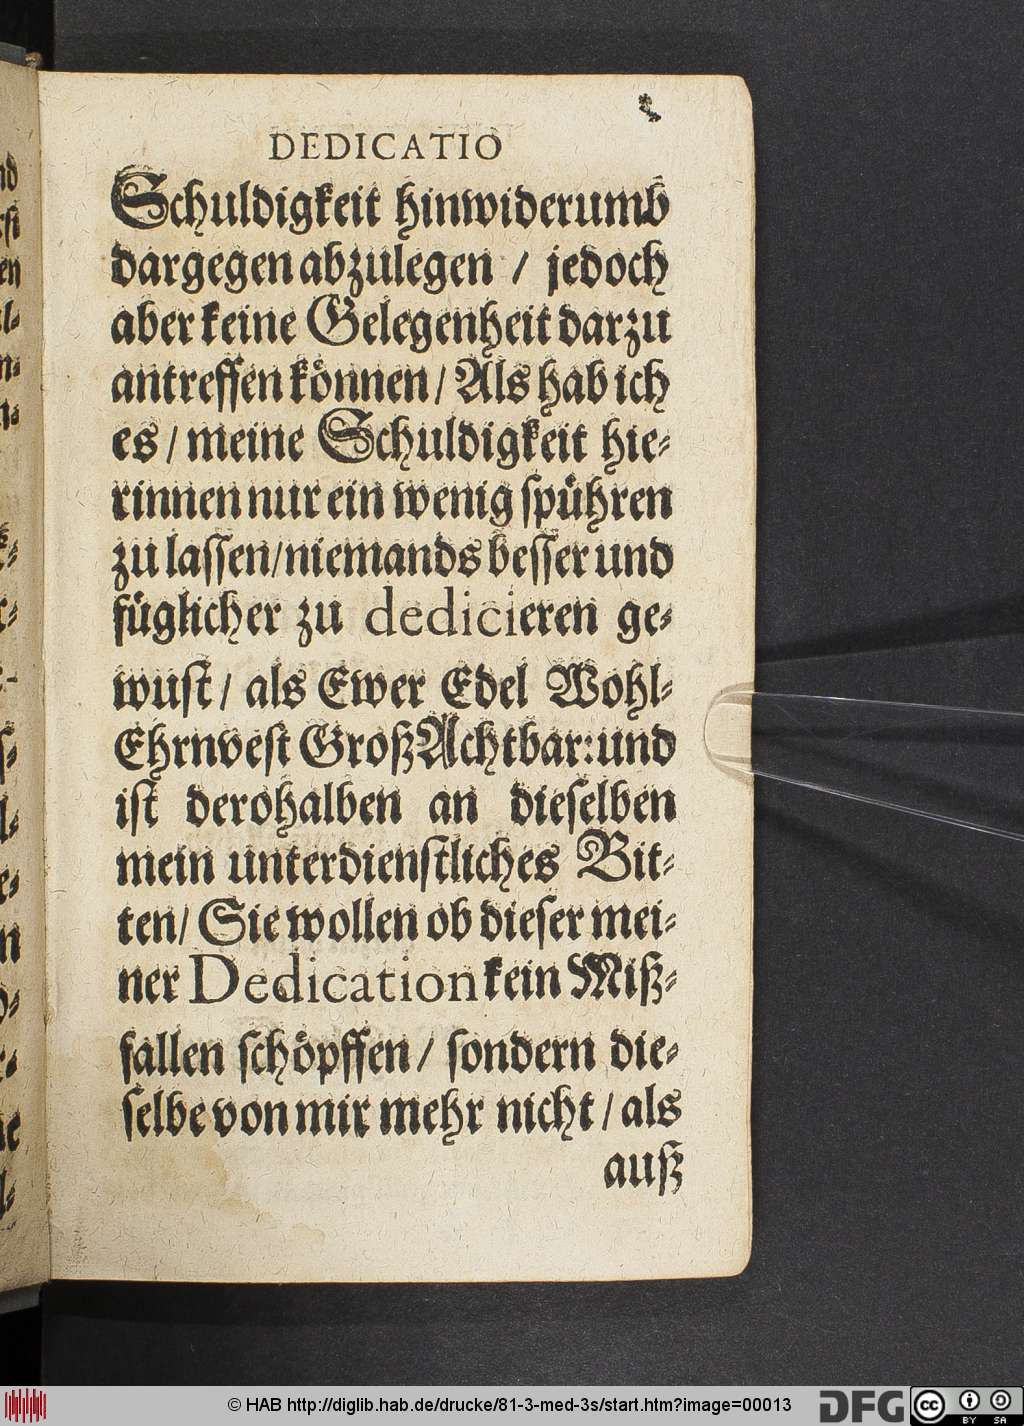 DEDICATIO
Schuldigkeit hinwiderumb
dargegen abzulegen / jedoch
aber keine Gelegenheit darzu
antreffen können / Als hab ich
es / meine Schuldigkeit hie⸗
rinnen nur ein wenig spühren
zu lassen / niemands besser und
füglicher zu dedicieren ge⸗
wust / als Ewer Edel Wohl⸗
Ehrnvest GroßAchtbar: und
ist derohalben an dieselben
mein unterdienstliches Bit⸗
ten / Sie wollen ob dieser mei⸗
ner Dedication kein Miß⸗
fallen schöpffen / sondern die⸗
selbe von mir mehr nicht / als
auß
© HAB http://diglib.hab.de/drucke/81-3-med-3s/start.htm?image=00013
DFG
cc
BY SA